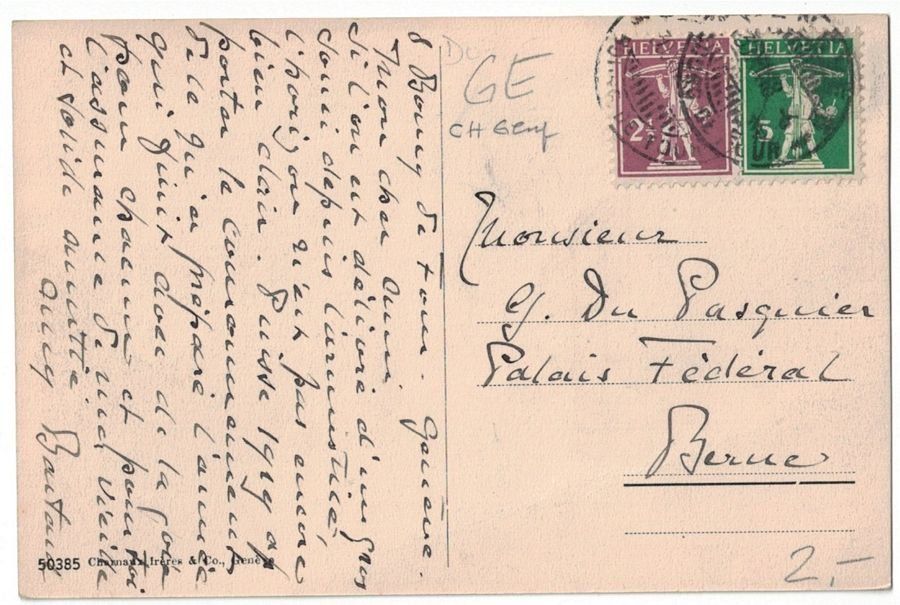 8 Bourg de Four. Genève.
Mon cher ami
Si l'on est délivré d'un gros
souci depuis l'armistice,
l'horizon n'est pas encore
bien clair. Puisse 1919 ap
porter le couronnement
de ce qu'a préparé l'année
qui finit avec de la joie
pour chacun et pour toi
l'assurance de ma vieille
et solide amitié
GE
CH Genf
HELVETIA
2½
HELVETIA
5
Monsieur
G. Du Pasquier
Palais Fédéral
Berne
50385 Charnaux frères & Co., Genève
2,-